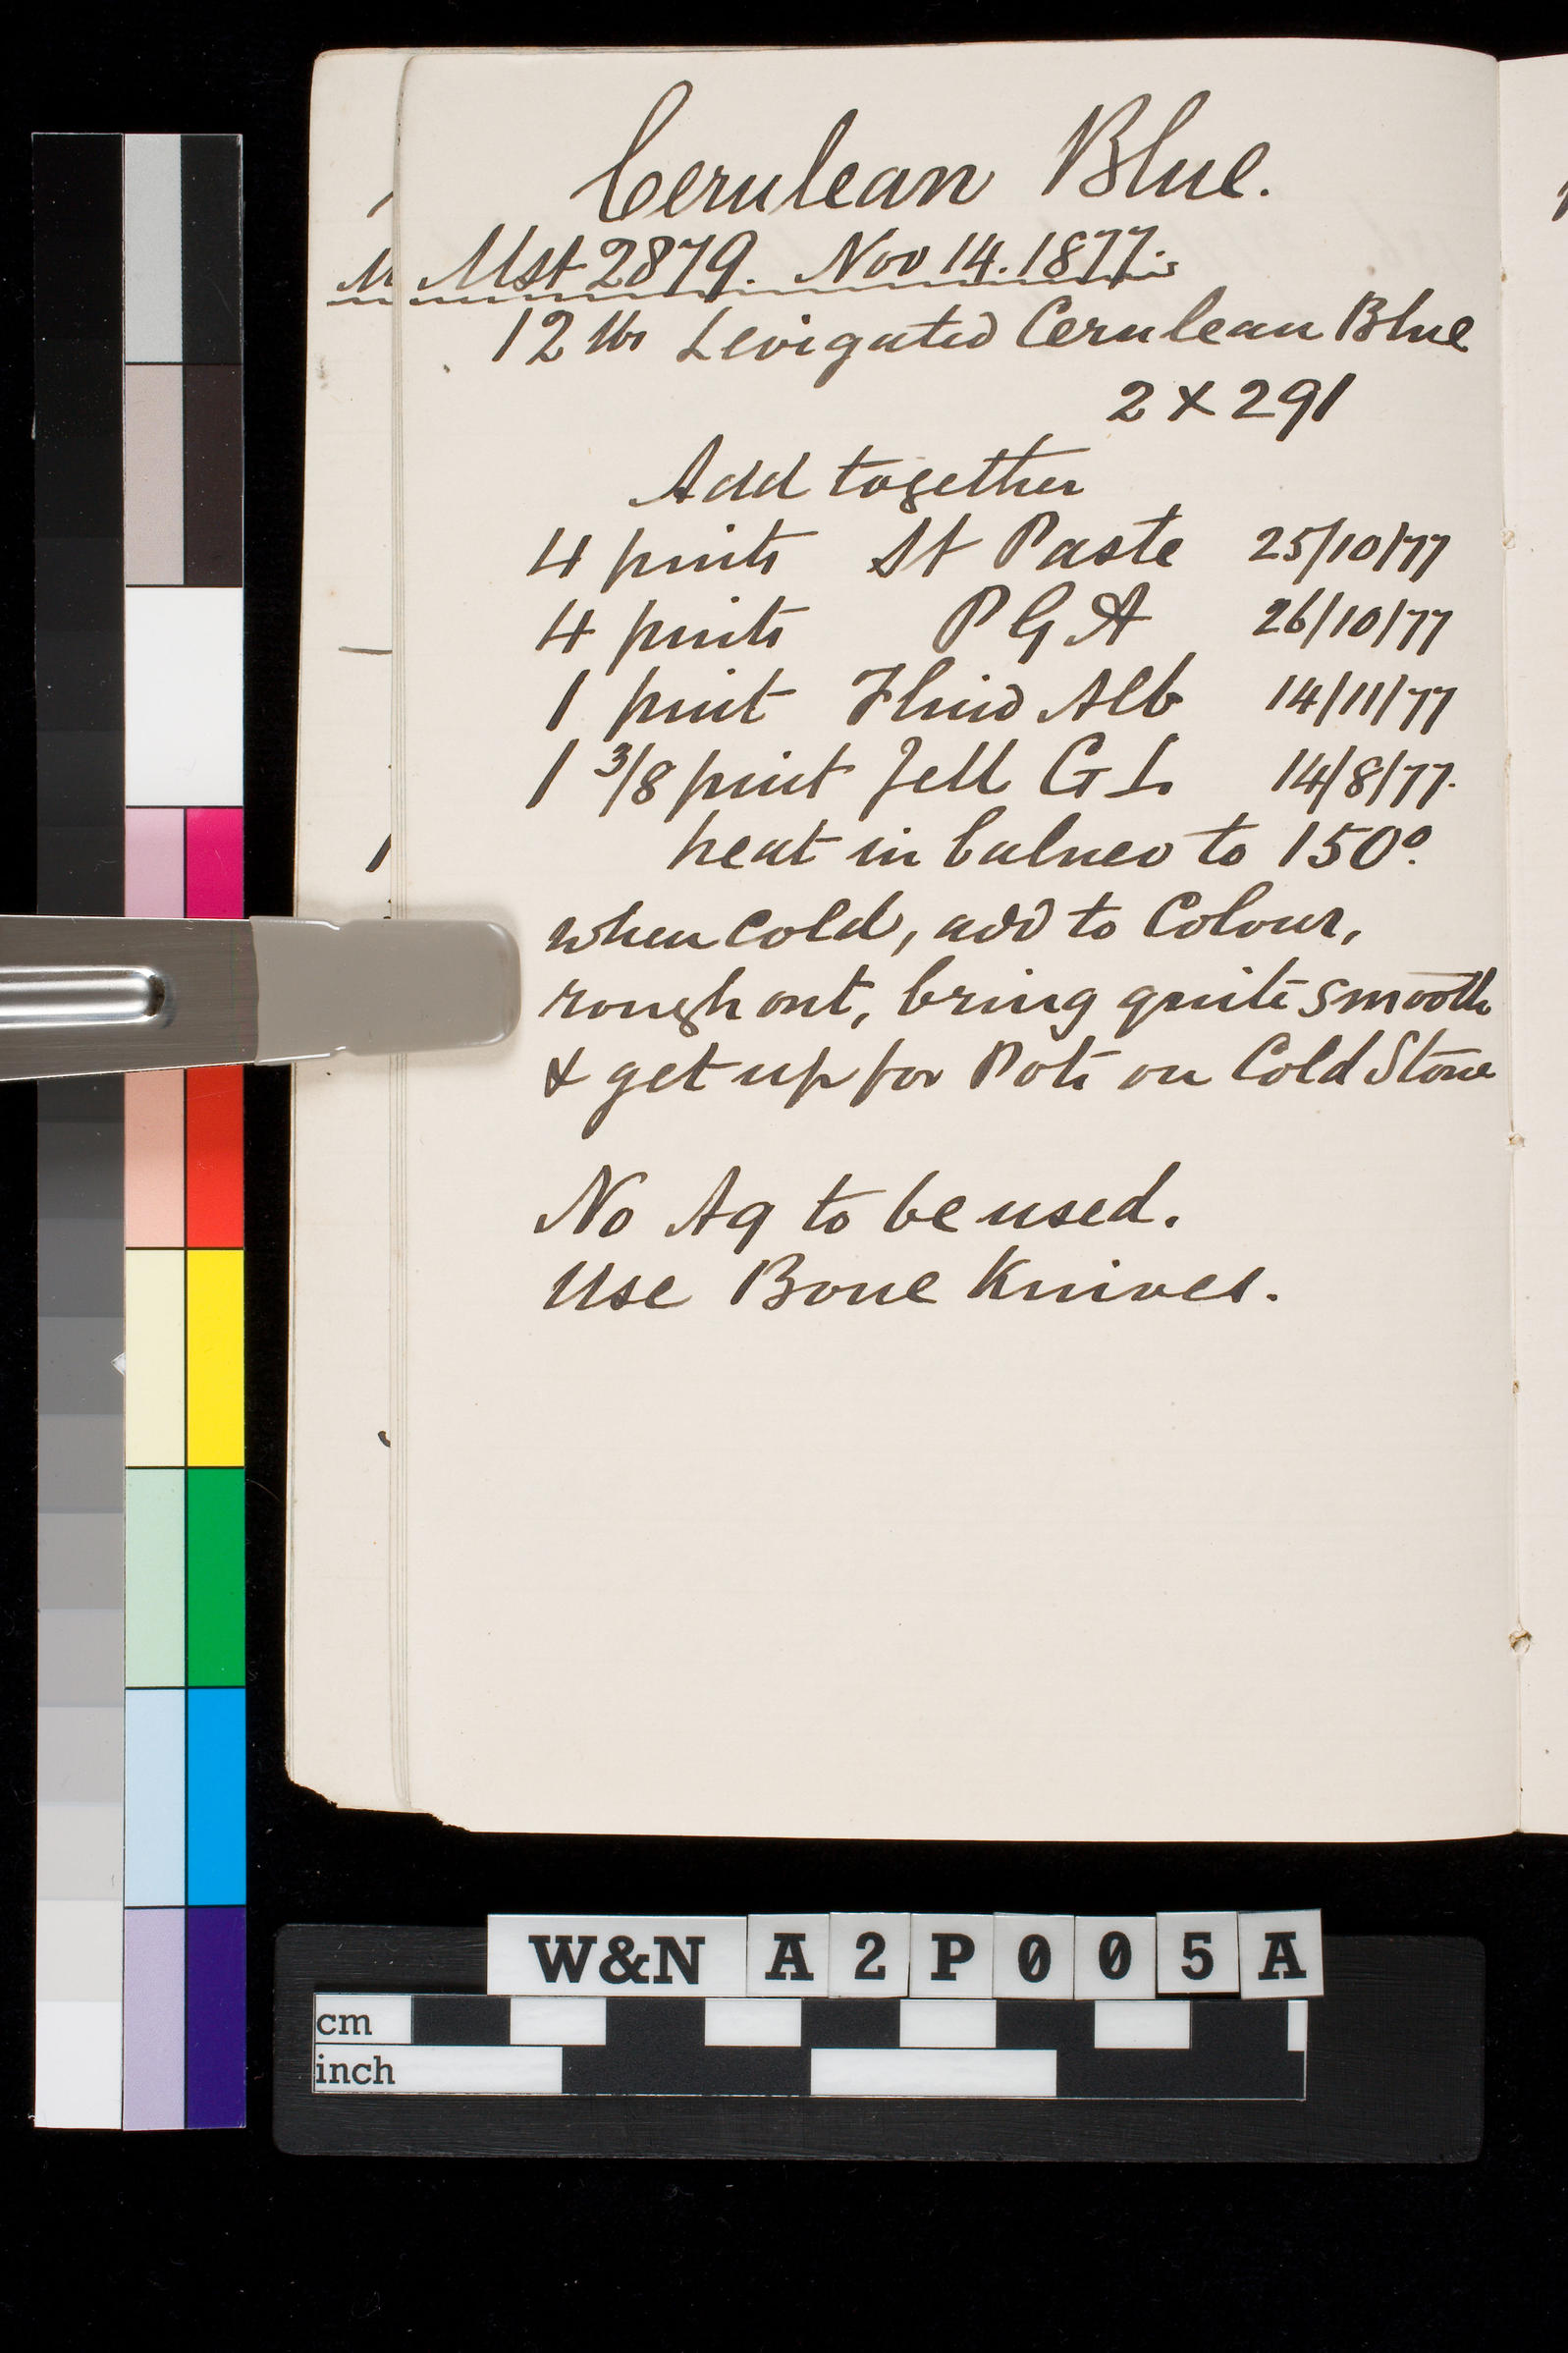 Cerulean Blue.
Mst 2879. Nov 14. 1877.
12 lbs Levigated Cerulean Blue
2 X 291
Add together
4 pints St Paste 25/10/77
4 pints P G A 26/10/77
1 pint Fluid Alb 14/11/77
1 3/8 pint Jell G L 14/8/77.
heat in balneo to 150°.
when cold, add to Colour,
rough out, bring quite smooth
& get up for Pots on Cold Stone
No Aq to be used.
Use Bone Knives.
W&N A2P005A
cm
inch